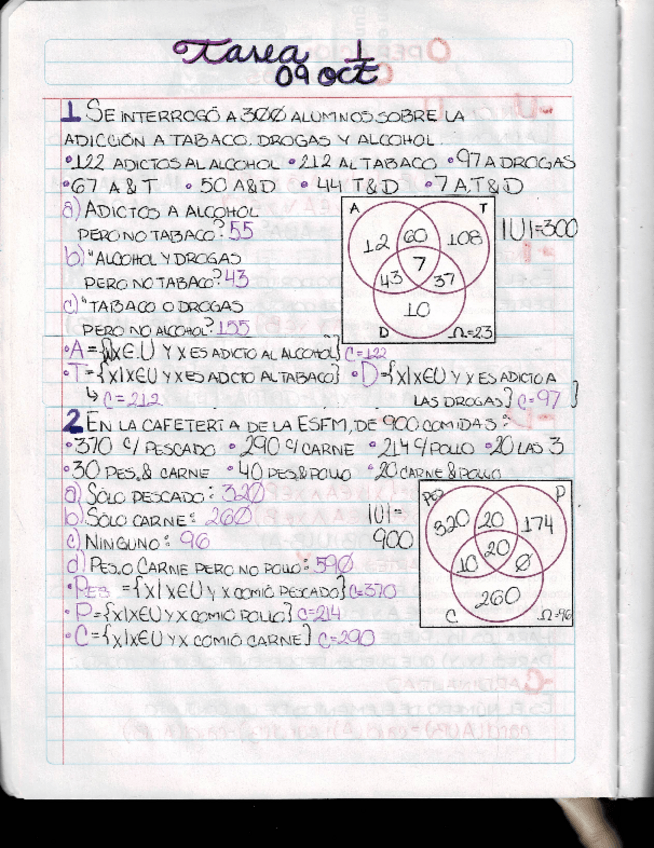 Tarea 1
09 oct
1 SE INTERROGÓ A 300 ALUMNOS SOBRE LA
ADICCIÓN A TABACO, DROGAS Y ALCOHOL.
•122 ADICTOS AL ALCOHOL •212 AL TABACO •97 A DROGAS
•67 A & T • 50 A&D • 44 T&D • 7 A,T&D
a) ADICTOS A ALCOHOL
PERO NO TABACO? 55
b) "ALCOHOL Y DROGAS
PERO NO TABACO? 43
c) "TABACO O DROGAS
PERO NO ALCOHOL? 155
A T
12 60 108
7
43 37
10
D Ω=23
|U|=300
•A = {x|x∈U Y X ES ADICTO AL ALCOHOL} C=122
•T = {x|x∈U Y X ES ADICTO AL TABACO} •D = {x|x∈U Y X ES ADICTO A
↳ C=212 LAS DROGAS} C=97
2 EN LA CAFETERIA DE LA ESFM, DE 900 COMIDAS:
•370 C/ PESCADO •290 C/ CARNE •214 C/ POLLO •20 LAS 3
•30 PES. & CARNE •40 PES & POLLO •20 CARNE & POLLO
a) SÓLO PESCADO: 320
b) SÓLO CARNE: 260
c) NINGUNO: 96
d) PES. O CARNE PERO NO POLLO: 590
|U|=
900
Pes P
320 20 174
20
10 Ø
260
C Ω=96
•Pes = {x|x∈U Y X COMIÓ PESCADO} C=370
•P = {x|x∈U Y X COMIÓ POLLO} C=214
•C = {x|x∈U Y X COMIÓ CARNE} C=290